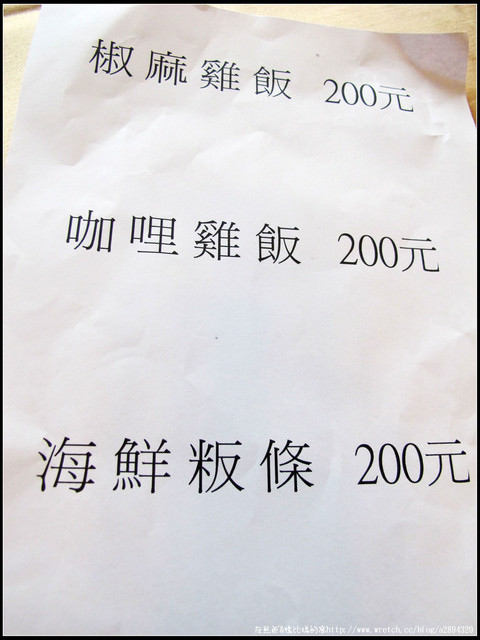 椒麻雞飯 200元
咖哩雞飯 200元
海鮮粄條 200元
http://www.wretch.cc/blog/a2894320